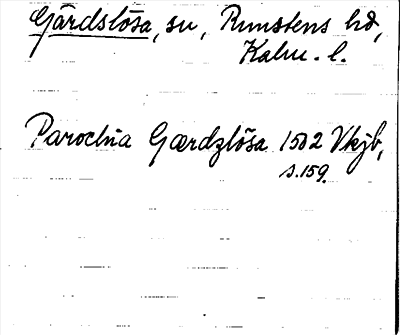 Gärdslösa, sn, Runstens hd,
Kalm. l.
Parochia Gærdzlösa 1502 Vkjb,
s.159.